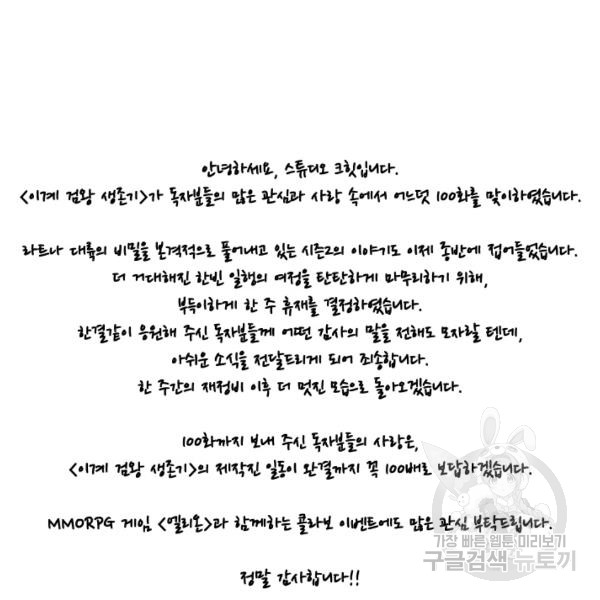 안녕하세요, 스튜디오 크릿입니다.
<이계 검왕 생존기>가 독자분들의 많은 관심과 사랑 속에서 어느덧 100화를 맞이하였습니다.
라트나 대륙의 비밀을 본격적으로 풀어내고 있는 시즌2의 이야기도 이제 종반에 접어들었습니다.
더 거대해진 한빈 일행의 여정을 탄탄하게 마무리하기 위해,
부득이하게 한 주 휴재를 결정하였습니다.
한결같이 응원해 주신 독자분들께 어떤 감사의 말을 전해도 모자랄 텐데,
아쉬운 소식을 전달드리게 되어 죄송합니다.
한 주간의 재정비 이후 더 멋진 모습으로 돌아오겠습니다.
100화까지 보내 주신 독자분들의 사랑은,
<이계 검왕 생존기>의 제작진 일동이 완결까지 꼭 100배로 보답하겠습니다.
MMORPG 게임 <엘리온>과 함께하는 콜라보 이벤트에도 많은 관심 부탁드립니다.
가장 빠른 웹툰 미리보기
구글검색 뉴토끼
정말 감사합니다!!